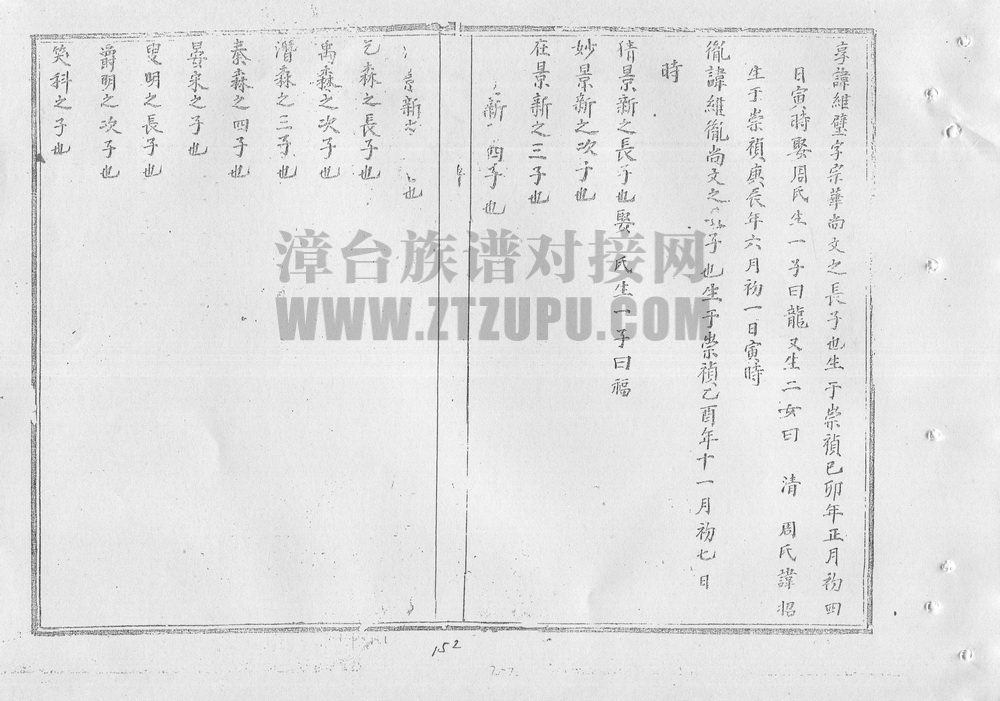 享諱維璧字宗華尚文之長子也生于崇禎己卯年正月初四
日寅時娶周氏生一子曰龍又生二女曰 清 周氏諱招
生于崇禎庚辰年六月初一日寅時
胤諱維胤尚文之 子也生于崇禎乙酉年十一月初七日
時
倩景新之長子也娶 氏生一子曰福
妙景新之次子也
在景新之三子也
新 四子也
新 也
森之長子也
禹森之次子也
潛森之三子也
泰森之四子也
晏宋之子也
叟明之長子也
爵明之次子也
奐科之子也
漳台族谱对接网
WWW.ZTZUPU.COM
152